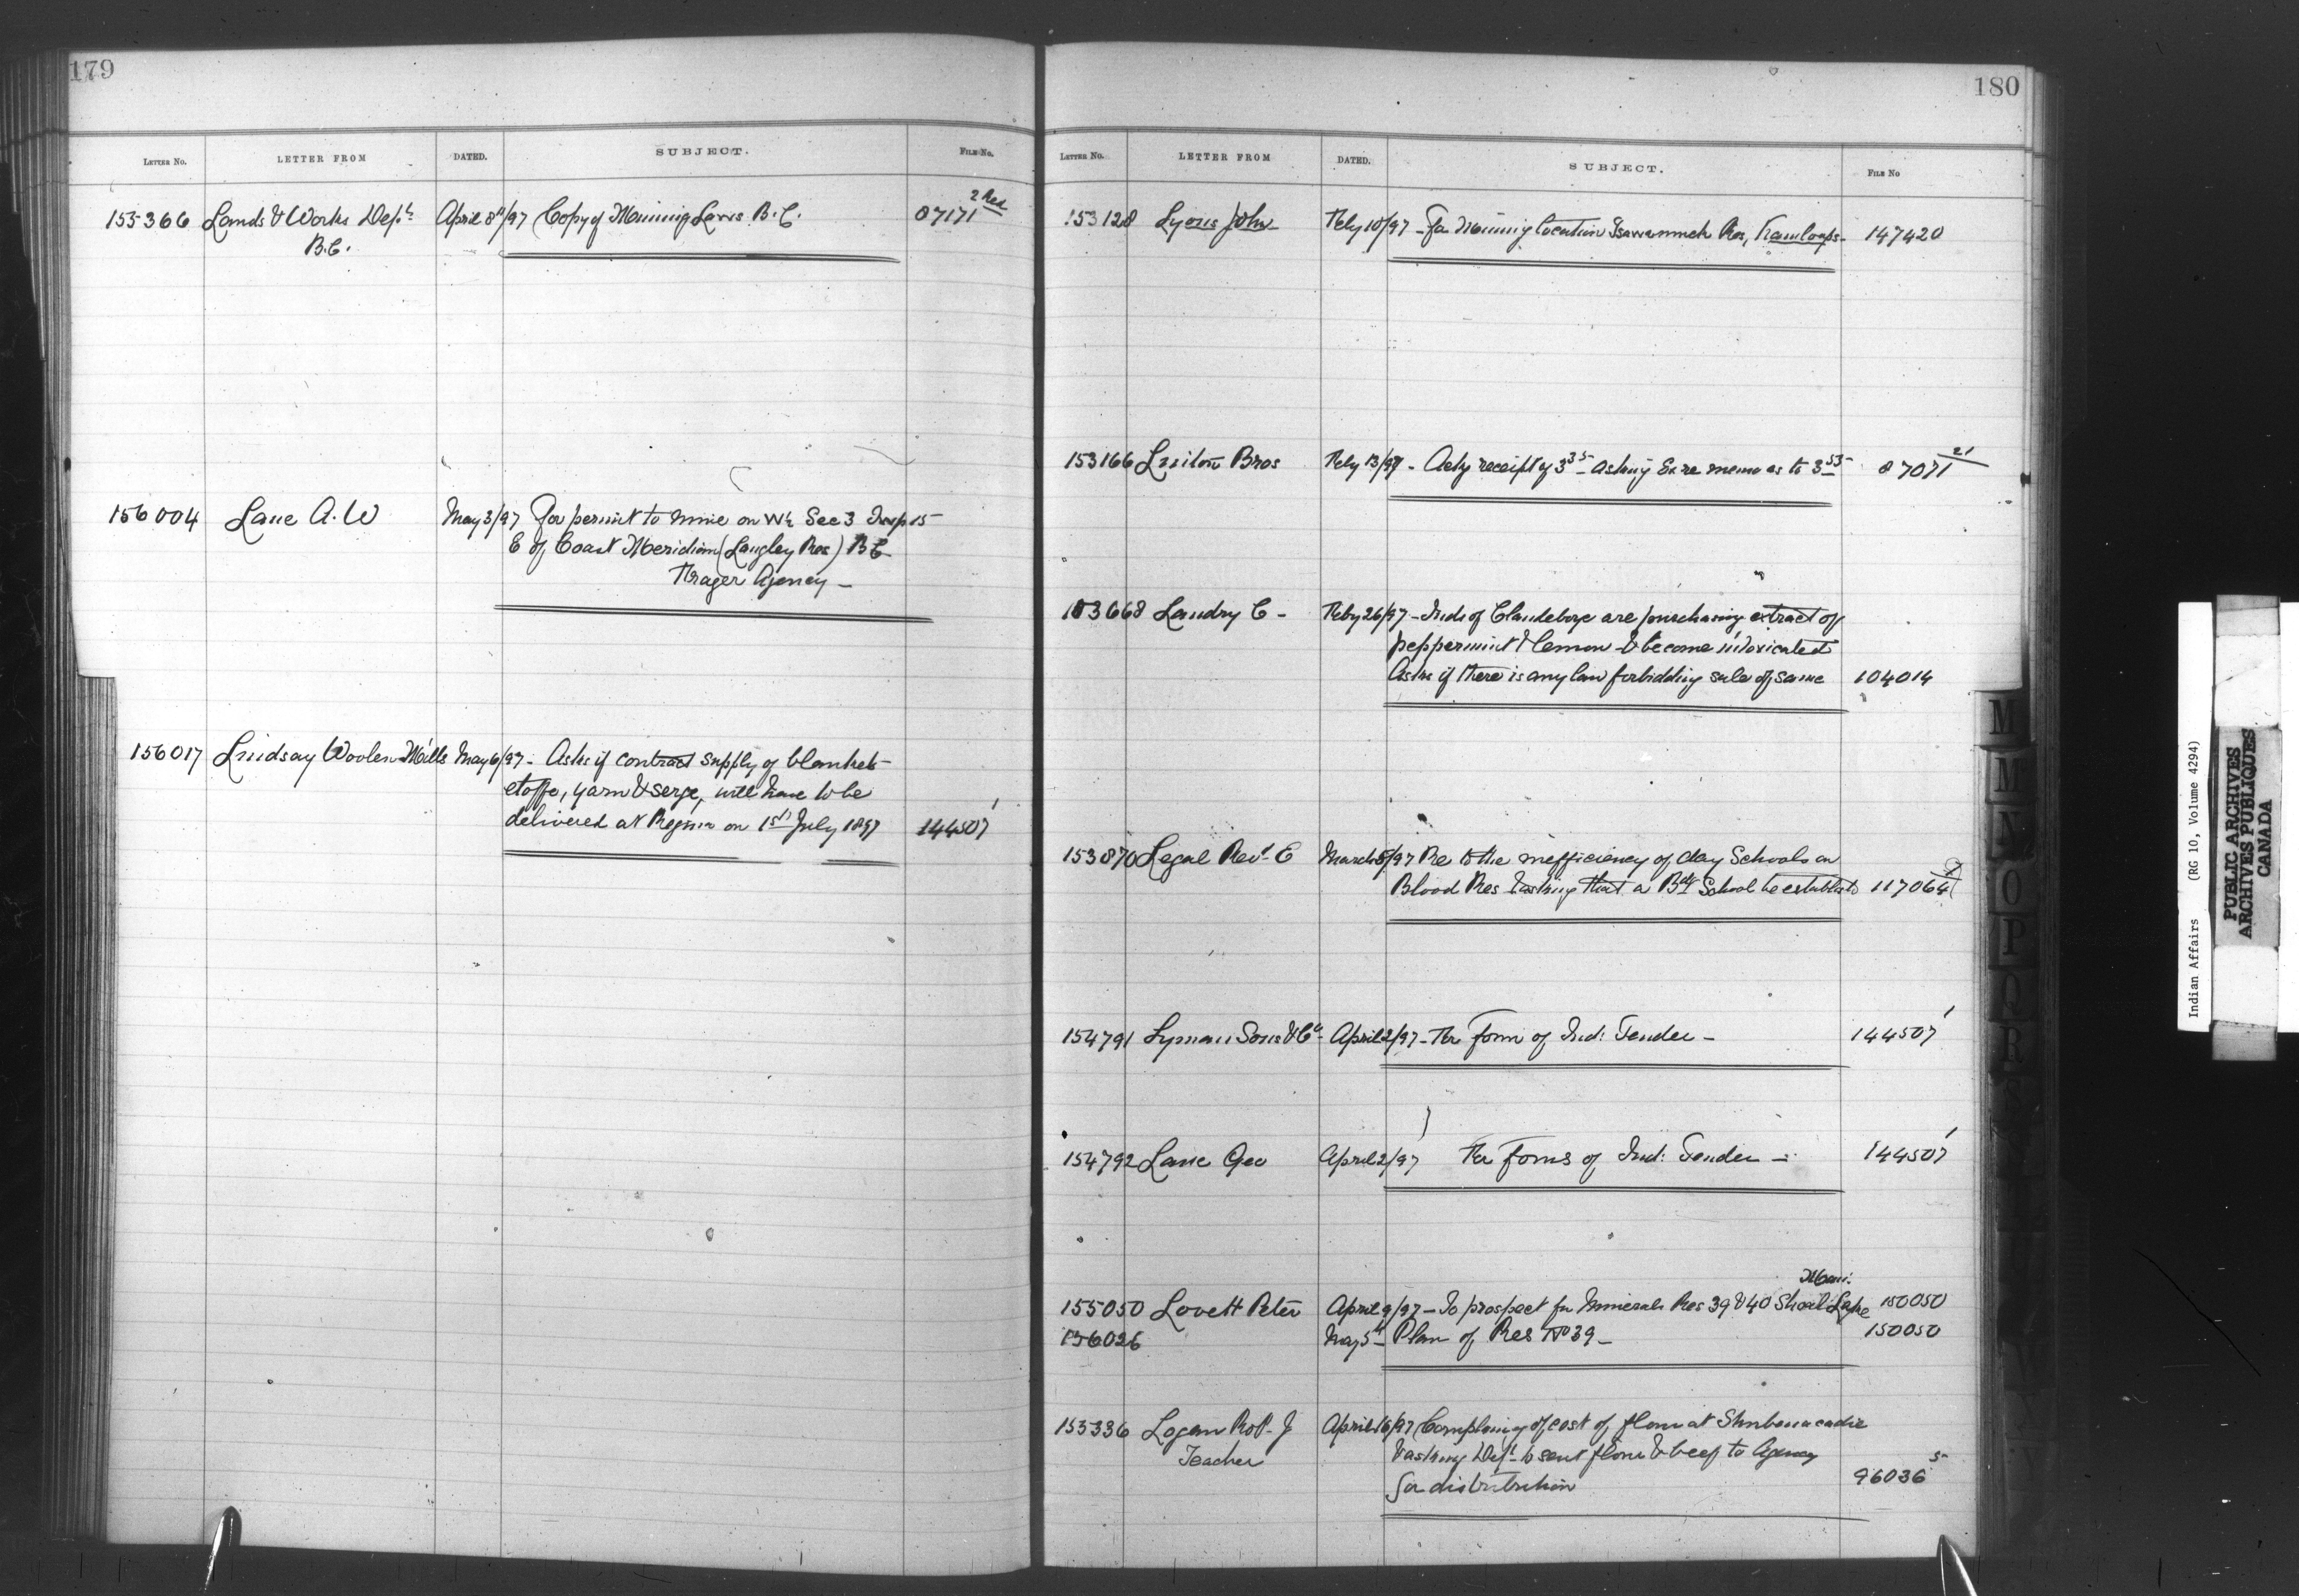 179
LETTER NO. LETTER FROM DATED. SUBJECT. FILE No.
155366 Lands & Works Dept April 8th/97 Copy of Mining Laws B.C. 87171 2 Red
B.C.
156004 Lane A. W May 3/97 For permit to mine on W½ Sec 3 Twsp 15
E of Coast Meridian (Langley Res) B C
Fraser Agency —
156017 Lindsay Woolen Mills May 6/97 - Asks if contract supply of blankets
etoffe, yarn & serge, will have to be
delivered at Regina on 1st July 1897 144507 1
180
LETTER NO. LETTER FROM DATED. SUBJECT. FILE No
153128 Lyons John Feby 10/97 - For Mining location Res, Kamloops - 147420
153166 Bros Feby 13/97 - Ackg receipt of 3 35 - asking memo as to 3 53 87071 21
153668 Landry C - Feby 26/97 - Inds of Clandeboye are purchasing extract of
peppermint & lemon & become intoxicated
Asks if there is any law forbidding sale of same 104014
153870 Legal Revd E March 5/97 Re to the inefficiency of day Schools on
Blood Res & asking that a Bdg School be established 117064
154791 Lyman Sons & Co - April 2/97 - For form of Ind: Tender - 144507 1
154792 Lane Geo April 2/97 For forms of Ind: Tender - 144507 1
Mani.
155050 Lovett Peter April 9/97 - To prospect for Minerals Res 39 & 40 Shoal Lake 150050
156026 May 5th - Plan of Res No 39 - 150050
155336 Logan Robt. J April 16/97 Complaing of cost of flour at Shubenacadie
Teacher & asking Dept to sent flour & beef to Agency
for distribution 96036 5
M
M
N
O
P
Q
R
S
Indian Affairs (RG 10, Volume 4294)
PUBLIC ARCHIVES
ARCHIVES PUBLIQUES
CANADA